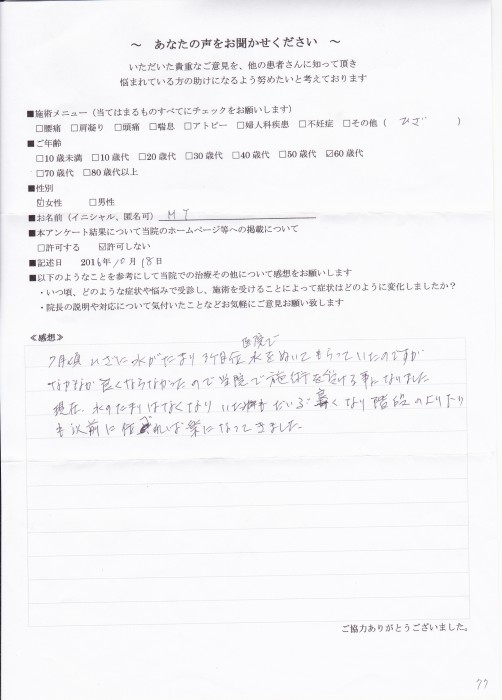 ～ あなたの声をお聞かせください ～
いただいた貴重なご意見を、他の患者さんに知って頂き
悩まれている方の助けになるよう努めたいと考えております
■施術メニュー（当てはまるものすべてにチェックをお願いします）
□腰痛 □肩凝り □頭痛 □喘息 □アトピー □婦人科疾患 □不妊症 □その他（ ひざ ）
■ご年齢
□10歳未満 □10歳代 □20歳代 □30歳代 □40歳代 □50歳代 ☑60歳代
□70歳代 □80歳代以上
■性別
☑女性 □男性
■お名前（イニシャル、匿名可） M T
■本アンケート結果について当院のホームページ等への掲載について
□許可する ☑許可しない
■記述日 2016年10月18日
■以下のようなことを参考にして当院での治療その他について感想をお願いします
・いつ頃、どのような症状や悩みで受診し、施術を受けることによって症状はどのように変化しましたか？
・院長の説明や対応について気付いたことなどお気軽にご意見お願い致します
≪感想≫
医院で
7月頃 ひざに水がたまり 水をぬいてもらっていたのですが
なかなか良くならなかったので当院で施術を受ける事になりました
現在、水のたまりはなくなり いた みもだいぶ なくなり階段のぼりおり
も以前に 比べれば楽になってきました。
ご協力ありがとうございました。
77